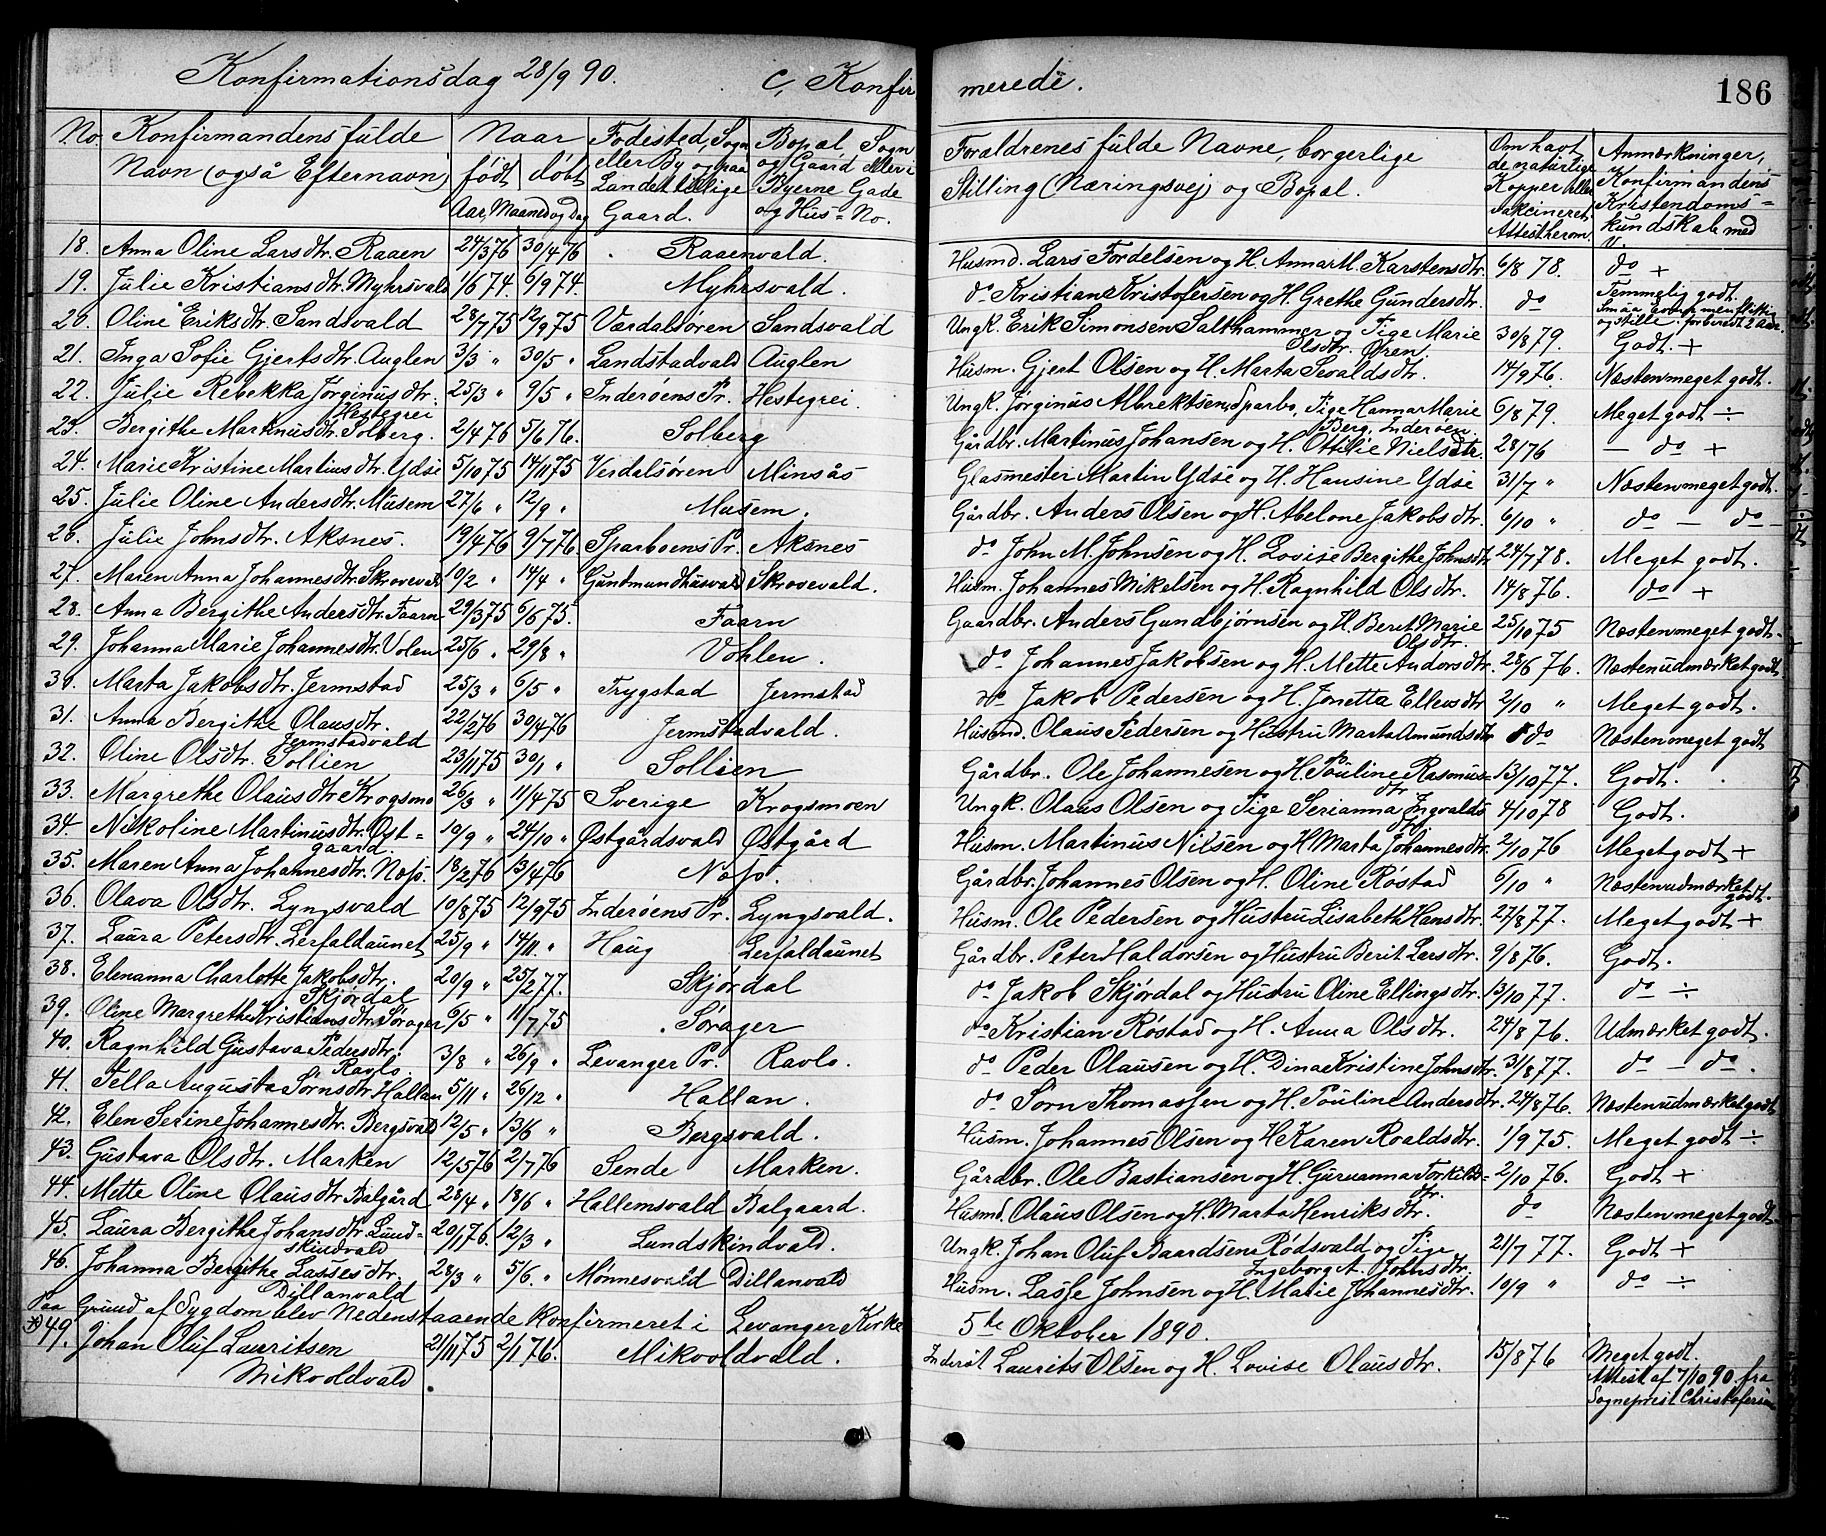 Konfirmationsdag 28/9 90. C, Konfirmerede. 186
No. Konfirmandens fulde Navn (også Efternavn) Naar født døbt Aar, Maaned og Dag Fødested, Sogn eller By og paa Landet tillige Gaard. Bopæl, Sogn og Gaard eller i Byerne Gade og Hus-No. Forældrenes fulde Navne, borgerlige Stilling (Næringsvej) og Bopæl. Om havt de naturlige Kopper eller vakcineret, Attest herom. Anmærkninger, Konfirmandens Kristendomskundskab med V.
18. Anna Oline Larsdtr. Raaen 24/3 76 30/4 76 Raaenvald. Husmd. Lars Fordelsen og H. Anna M. Karstensdtr. 6/8 78. do +
19. Julie Kristiansdtr. Myhrsvald 1/6 74. 6/9 74. Myhrsvald. do Kristian Kristofersen og H. Grethe Gundersdtr. do Temmelig godt.
20. Oline Eriksdtr. Sandsvald 28/7 75 12/9 75 Værdalsøren Sandsvald Ungk. Erik Simonsen Salthammer og Pige Marie Olsdtr. Øren. 30/8 79. Smaa Evner men flittig og stille. forberedt 2 Aar. Godt. +
21. Inga Sofie Gjertsdtr. Auglen 3/3 " 30/5 " Landstadvald Auglen Husm. Gjert Olsen og H. Marta Sivaldsdtr. 14/9 76. Næsten meget godt.
22. Julie Rebekka Jørginusdtr. Hestegrei 25/3 " 9/5 " Inderøens Pr. Hestegrei. Ungk. Jørginus Albrektsen, Sparbo, Pige Hanna Marie Berg, Inderøen 6/8 79. Meget godt ÷
23. Bergithe Martinusdtr. Solberg. 2/4 76 5/6 76. Solberg Gårdbr. Martinus Johansen og H. Ottilie Nielsdtr. 28/76 — do +
24. Marie Kristine Martinsdtr. Ydse 5/10 75 14/11 75 Verdalsøren Minsås Glasmester Martin Ydse og H. Hansine Ydse 31/7 " Næsten meget godt.
25. Julie Oline Andersdtr. Musem 27/6 " 12/9 " Musem. Gårdbr. Anders Olsen og H. Abelone Jakobsdtr. 6/10 " do — do —
26. Julie Johnsdtr. Aksnes. 19/4 76 9/7 76 Sparboens Pr. Aksnes do John M. Johnsen og H. Lovise Bergithe Johnsdtr. 24/7 78. Meget godt.
27. Maren Anna Johannesdtr. Skrovevald 19/2 " 14/4 " Gundmundhusvald Skrovevald. Husm. Johannes Mikelsen og H. Ragnhild Olsdtr. 14/8 76. do +
28. Anna Bergithe Andersdtr. Faarn 29/3 75 6/6 75. Faarn Gaardbr. Anders Gundbjørnsen og H. Berit Marie Olsdtr. 25/10 75 Næsten meget godt.
29. Johanna Marie Johannesdtr. Volen 25/6 " 29/8 " Vohlen. do Johannes Jakobsen og H. Mette Andorsdtr. 28/6 76. Næsten udmærket godt
30. Marta Jakobsdtr. Jermstad 25/3 " 6/5 " Trygstad Jermstad do Jakob Pedersen og H. Jonetta Ellevsdtr 2/10 " Meget godt.
31. Anna Bergithe Olausdtr. Jermstadvald 22/2 76 30/4 76 Jermstadvald. Husmd. Olaus Pedersen og Hustru Marta Amundsdtr do Næsten meget godt
32. Oline Olsdtr. Sollien 23/11 75 30/1 " Sollien Gårdbr. Ole Johannesen og H. Pouline Rasmusdtr. 13/10 77. Godt.
33. Margrethe Olausdtr. Krogsmo 26/3 " 11/4 75 Sverige Krogsmoen Ungk. Olaus Olsen og Pige Serianna Ingvaldsdtr. 4/10 78 Godt.
34. Nikoline Martinusdtr. Øst=gaard 19/9 " 24/10 " Østgårdsvald Østgård Husm. Martinus Nilsen og H. Marta Johannesdtr. 2/10 76 Meget godt +
35. Maren Anna Johannesdtr. Næss. 18/2 76 13/4 76 Næss. Gårdbr. Johannes Olsen og H. Oline Røstad 6/10 " Næsten udmærket godt.
36. Olava Olsdtr. Lyngsvald 10/8 75 12/9 75 Inderøens Pr. Lyngsvald. Husm. Ole Pedersen og Hustru Lisabeth Hansdtr. 27/8 77. Meget godt +
37. Laura Petersdtr. Lerfaldaunet 25/9 " 14/11 " Haug Lerfaldaunet Gårdbr. Peter Haldorsen og Hustru Berit Larsdtr. 9/8 76. Godt.
38. Elenanna Charlotte Jakobsdtr. Skjørdal 20/9 " 25/2 77. Skjørdal do Jakob Skjørdal og Hustru Oline Ellingsdtr. 13/10 77. do ÷
39. Oline Margrethe Kristiansdtr. Sørager 6/5 " 11/7 75 Sørager do Kristian Røstad og H. Anna Olsdtr. 24/8 76. Udmærket godt.
40. Ragnhild Gustava Pedersdtr. Ravlo. 3/8 " 26/9 " Levanger Pr. Ravlo. do Peder Olausen og H. Dina Kristine Johnsdtr. 31/8 77. do — do.
41. Pella Augusta Sørnsdtr. Hallan 5/11 " 26/12 " Hallan. do Sørn Thomassen og H. Pouline Andersdtr. 24/8 76. Næsten udmærket godt
42. Elen Serine Johannesdtr. Bergsvald 12/5 " 13/6 " Bergsvald. Husm. Johannes Olsen og H. Karen Roaldsdtr. 1/9 75. Meget godt ÷
43. Gustava Olsdtr. Marken 12/5 76 2/7 76 Sende Marken. Gårdbr. Ole Bastiansen og H. Guruanna Torkildsdtr. 2/10 76. Godt +
44. Mette Oline Olausdtr. Balgård 28/4 " 18/6 " Hallemsvald Balgaard. Husmd. Olaus Olsen og H. Marta Henriksdtr. do Næsten meget godt
45. Laura Bergithe Johansdtr. Lund=skindvald 20/1 76. 12/3 " Lundskindvald. Ungk. Johan Oluf Baardsen Rødsvald og Pige Ingeborg A. Johnsdtr. 21/7 77. Godt +
46. Johanna Bergithe Lassesdtr. Dillanvald 28/3 " 5/6. " Mønnesvald Dillanvald Husm. Lasse Johnsen og H. Marie Johannesdtr. 10/9 " do ÷
Paa Grund af Sygdom blev Nedenstaaende konfirmeret i Levanger Kirke 5te Oktober 1890.
49. Johan Oluf Lauritsen Mikvoldvald 21/11 75 2/1 76. Mikvoldvald. Inderst Laurits Olsen og H. Lovise Olausdtr. 15/8 76 Meget godt.
Attest af 7/10 90 fra
Sogneprest Christofersen